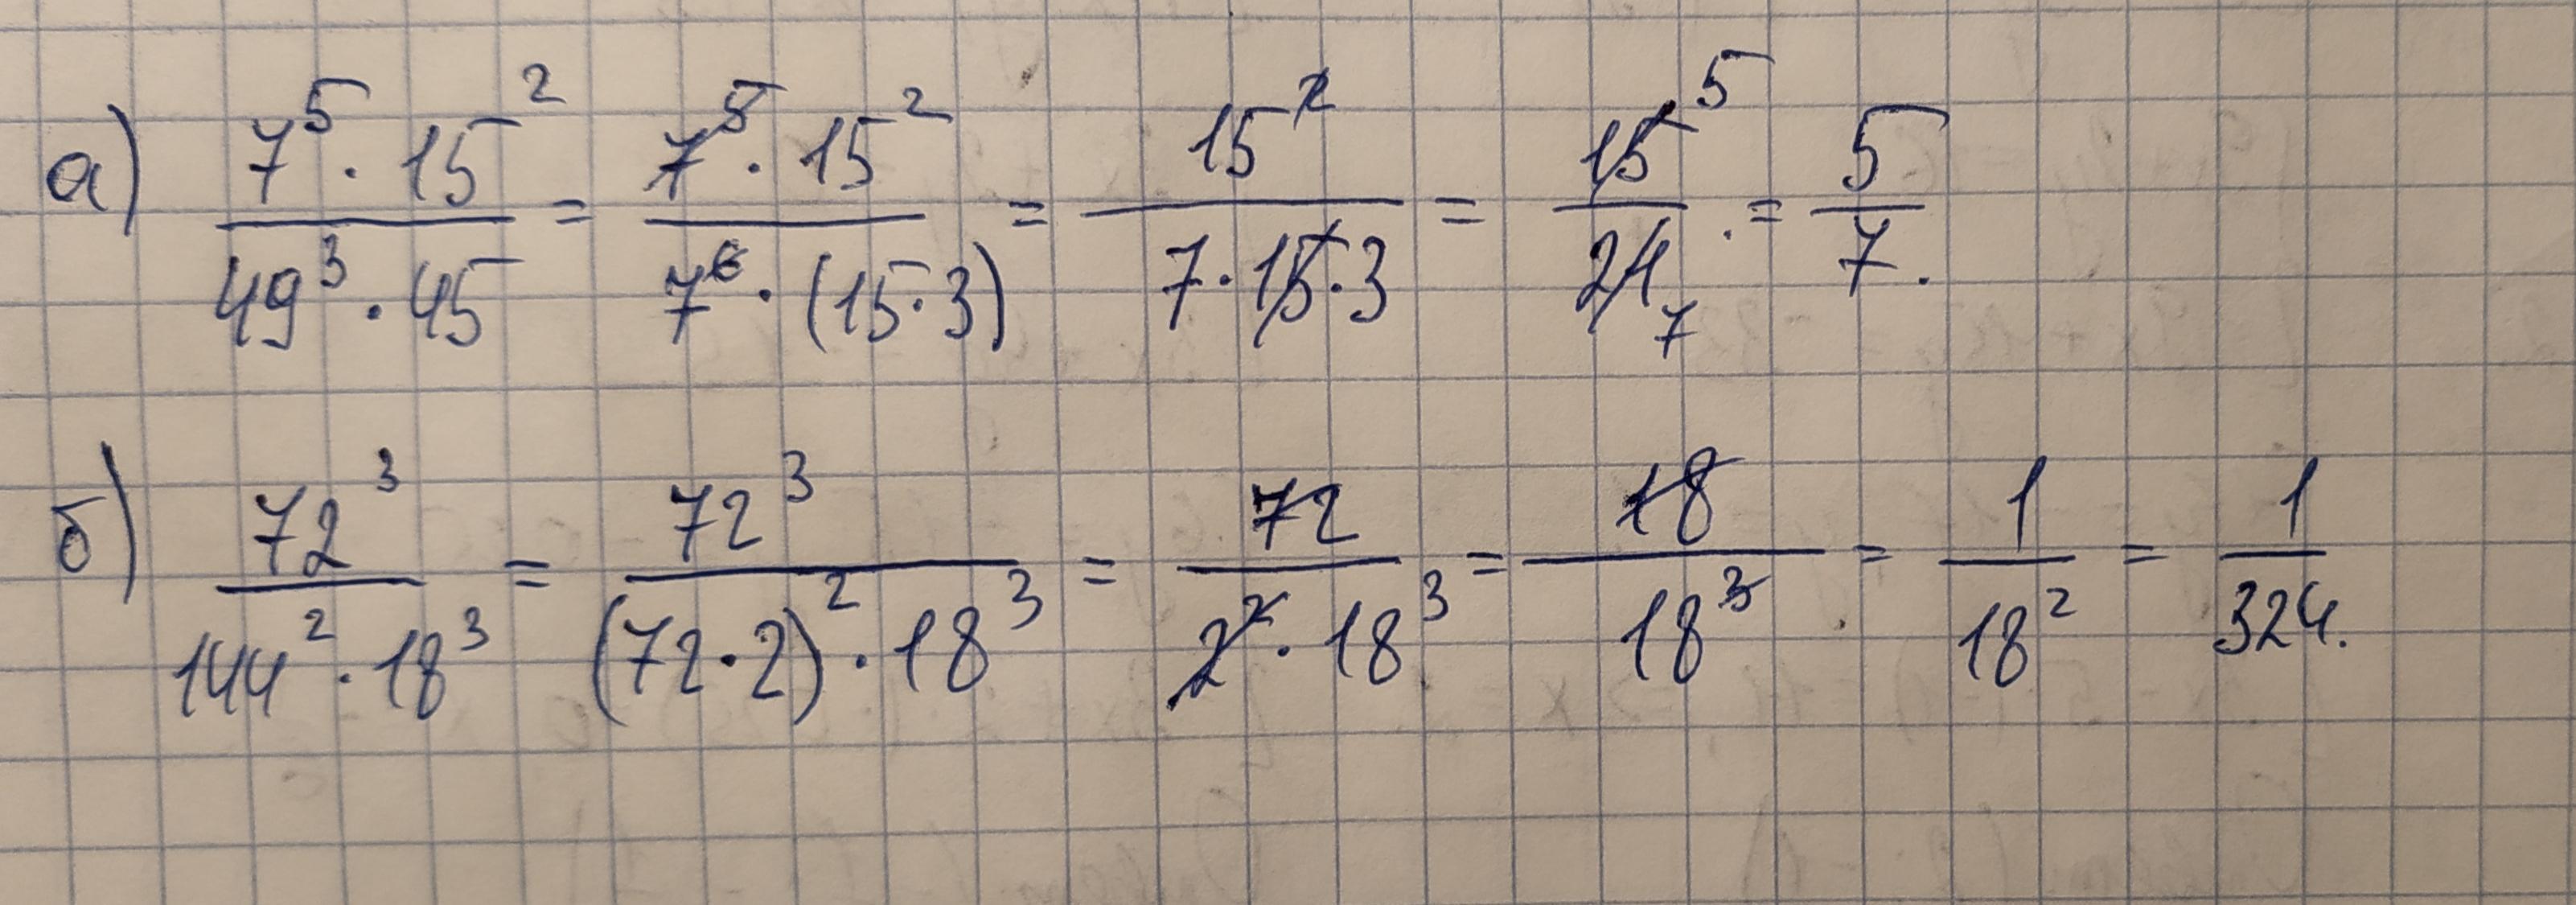 а) 7⁵ · 15² / 49³ · 45 = 7⁵ · 15² / 7⁶ · (15 · 3) = 15² / 7 · 15 · 3 = 15 5 / 21 7 = 5 / 7.
б) 72³ / 144² · 18³ = 72³ / (72 · 2)² · 18³ = 72 / 2² · 18³ = 18 / 18³ = 1 / 18² = 1 / 324.